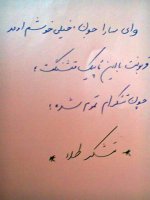 وای سارا جون، خیلی خوشم اومد
قربونت با این تاپیک قشنگت؛
چون تشکرام تموم شده؛
* تشکر طلا *